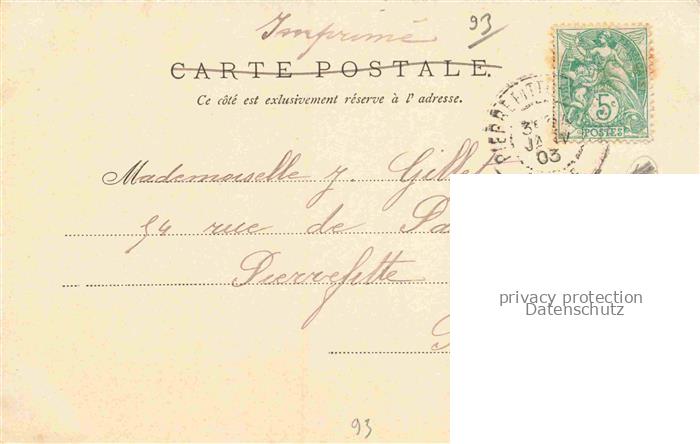 Imprimé 93
CARTE POSTALE.
Ce côté est exlusivement réserve à l'adresse.
5c
POSTES
PIERREFITTE
JANV
03
Mademoiselle J. Gillet
54 rue de
Pierrefitte
privacy protection
Datenschutz
93